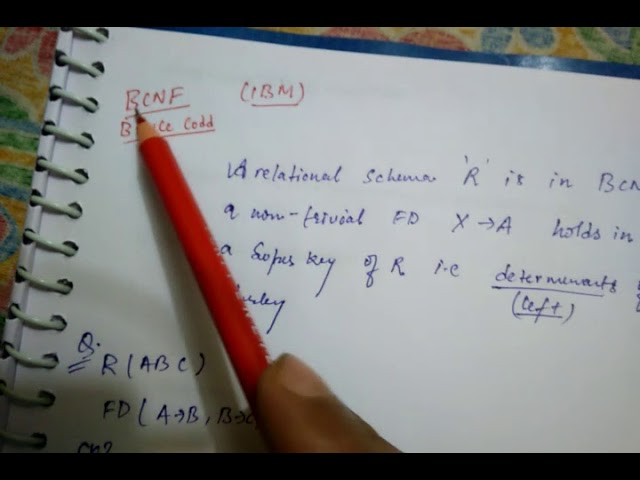 BCNF (IBM)
Codd
A relational schema 'R' is in BCN
a non-trivial FD X→A holds in
a Super key of R i.e determinants
(left)
Q.
R(ABC)
FD(A→B, B→C,